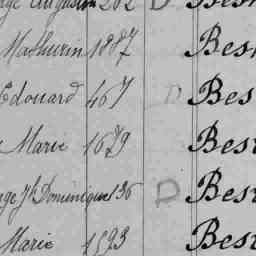 Augustin 262 D Best
Mathurin 1887 Best
Edouard 467 D Bes
Marie 1679 Best
Jh Dominique 136 D Best
Marie 1593 Best